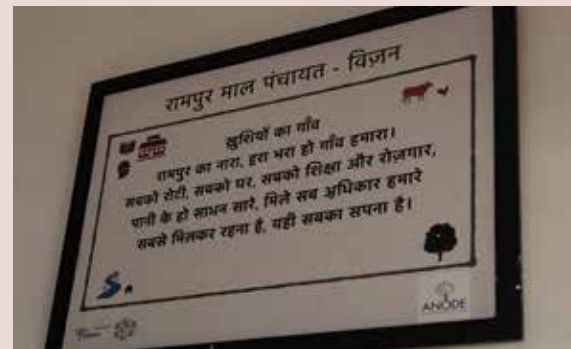 रामपुर माल पंचायत - विज़न
ख़ुशियों का गाँव
रामपुर का नारा, हरा भरा हो गाँव हमारा।
सबको रोटी, सबको घर, सबको शिक्षा और रोज़गार,
पानी के हो साधन सारे, मिले सब अधिकार हमारे
सबसे मिलकर रहना है, यही सबका सपना है।
ANODE